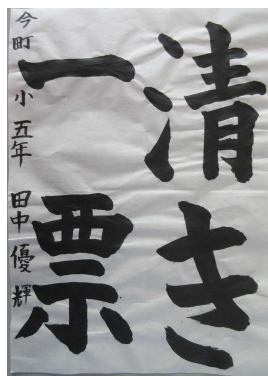 清き
一票
今町小五年 田中優輝